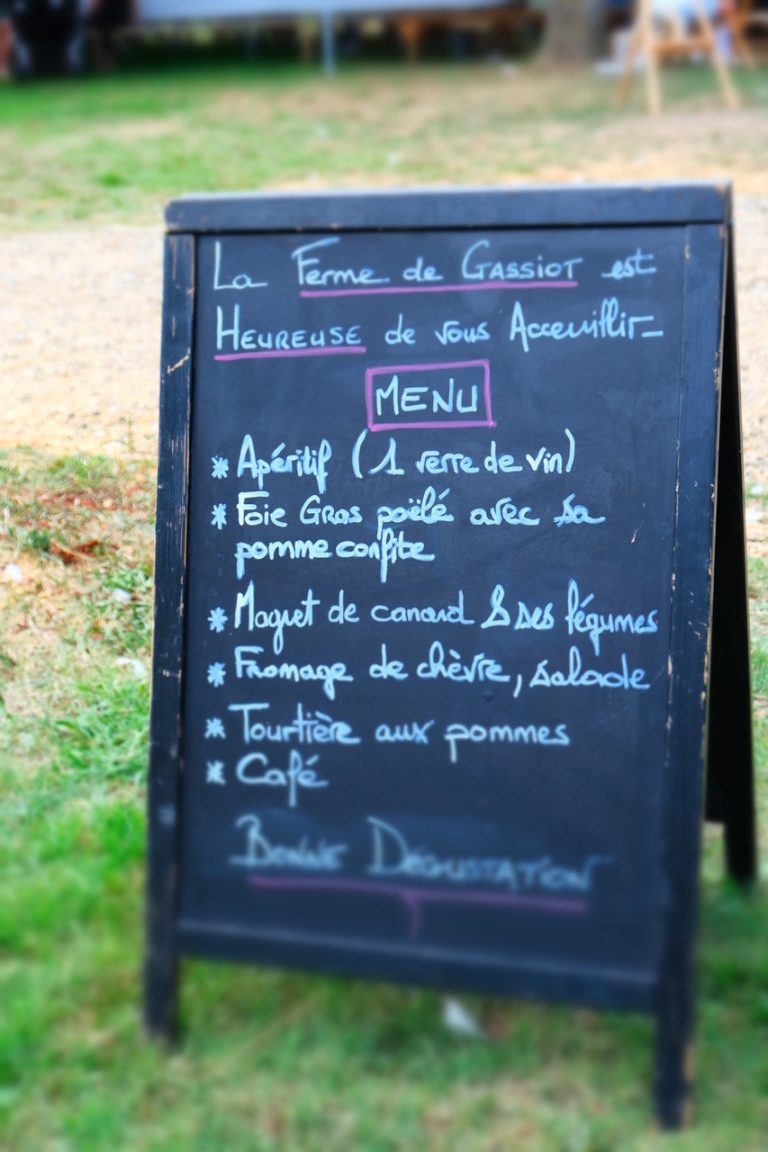 La Ferme de GASSIOT est
HEUREUSE de vous Acceuillir_
MENU
* Apéritif (1 verre de vin)
* Foie Gras poëlé avec sa
pomme confite
* Magret de canard & ses légumes
* Fromage de chèvre, salade
* Tourtière aux pommes
* Café
BONNE DÉGUSTATION